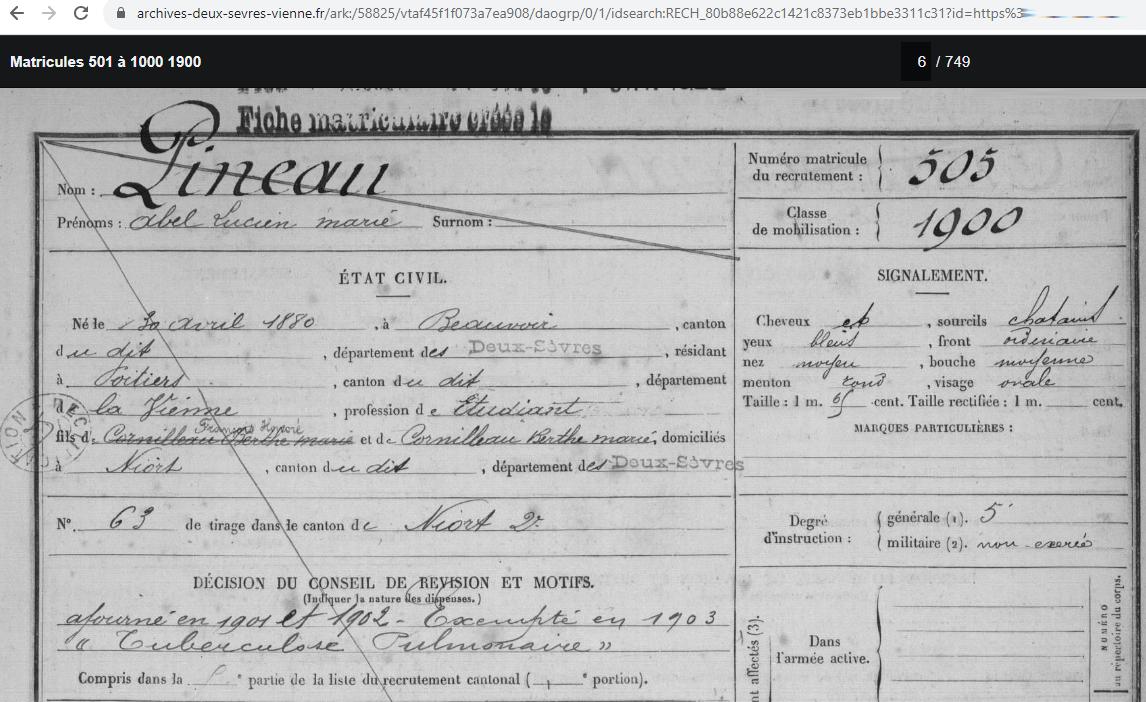 archives-deux-sevres-vienne.fr/ark:/58825/vtaf45f1f073a7ea908/daogrp/0/1/idsearch:RECH_80b88e622c1421c8373eb1bbe3311c31?id=https%3
Matricules 501 à 1000 1900
6 / 749
Fiche matriculaire créée le
Nom : Pineau
Prénoms : Abel Lucien marie Surnom :
ÉTAT CIVIL.
Né le 30 avril 1880, à Beauvoir, canton
du dit, département des Deux-Sèvres, résidant
à Poitiers, canton du dit, département
de la Vienne, profession de Etudiant,
François Honoré
fils de Cornilleau Berthe marie et de Cornilleau Berthe marie, domiciliés
à Niort, canton du dit, département des Deux-Sèvres
N° 63 de tirage dans le canton de Niort 2e
DÉCISION DU CONSEIL DE REVISION ET MOTIFS.
(Indiquer la nature des dispenses.)
ajourné en 1901 et 1902 - Exempté en 1903
"Tuberculose Pulmonaire"
Compris dans la e partie de la liste du recrutement cantonal ( e portion).
Numéro matricule
du recrutement : 505
Classe
de mobilisation : 1900
SIGNALEMENT.
Cheveux et, sourcils chatains
yeux bleus, front ordinaire
nez moyen, bouche moyenne
menton rond, visage ovale
Taille : 1 m. 65 cent. Taille rectifiée : 1 m. cent.
MARQUES PARTICULIÈRES :
Degré
d'instruction :
générale (1). 5
militaire (2). non exercé
Dans
l'armée active.
affectés (3).
NUMÉRO
au répertoire du corps.